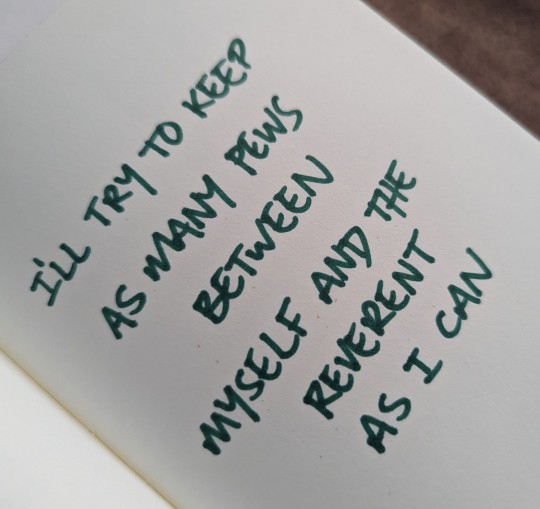 I'LL TRY TO KEEP
AS MANY PEWS
BETWEEN
MYSELF AND THE
REVERENT
AS I CAN